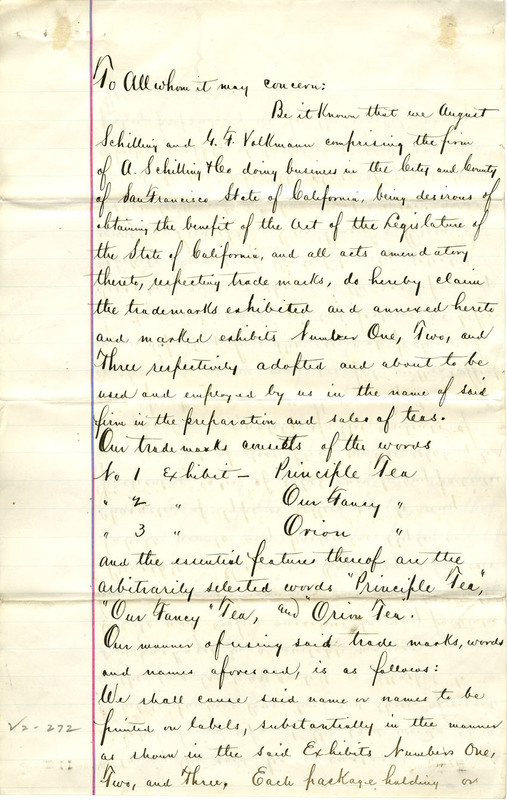 To All whom it may concern:
Be it Known that we August
Schilling and G. F. Volkmann comprising the firm
of A. Schilling & Co doing business in the City and County
of San Francisco State of California, being desirous of
obtaining the benefit of the Act of the Legislature of
the State of California, and all acts amendatory
thereto, respecting trade marks, do hereby claim
the trademarks exhibited and annexed hereto
and marked exhibits Number One, Two, and
Three respectively adopted and about to be
used and employed by us in the name of said
firm in the preparation and sales of teas.
Our trade marks consists of the words
No 1 Exhibit — Principle Tea
" 2 " Our Fancy "
" 3 " Orion "
and the essential features thereof are the
arbitrarily selected words "Principle Tea",
"Our Fancy" Tea, and "Orion Tea.
Our manner of using said trade marks, words
and names aforesaid, is as follows:
We shall cause said name or names to be
printed on labels, substantially in the manner
as shown in the said Exhibits Numbers One,
Two, and Three. Each package holding or
V2-272